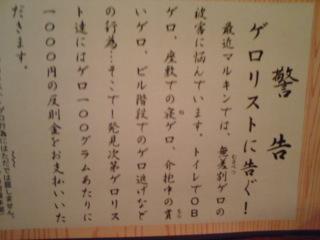 警告
ゲロリストに告ぐ！
最近マルキンでは、無差別ゲロの
被害に悩んでいます。トイレでOB
ゲロ、座敷での寝ゲロ、介抱中の貰
いゲロ、ビル階段でのゲロ逃げなど
の行為…そこで！発見次第ゲロリス
ト達にはゲロ100グラムあたりに
1000円の反則金をお支払いいた
だきます。